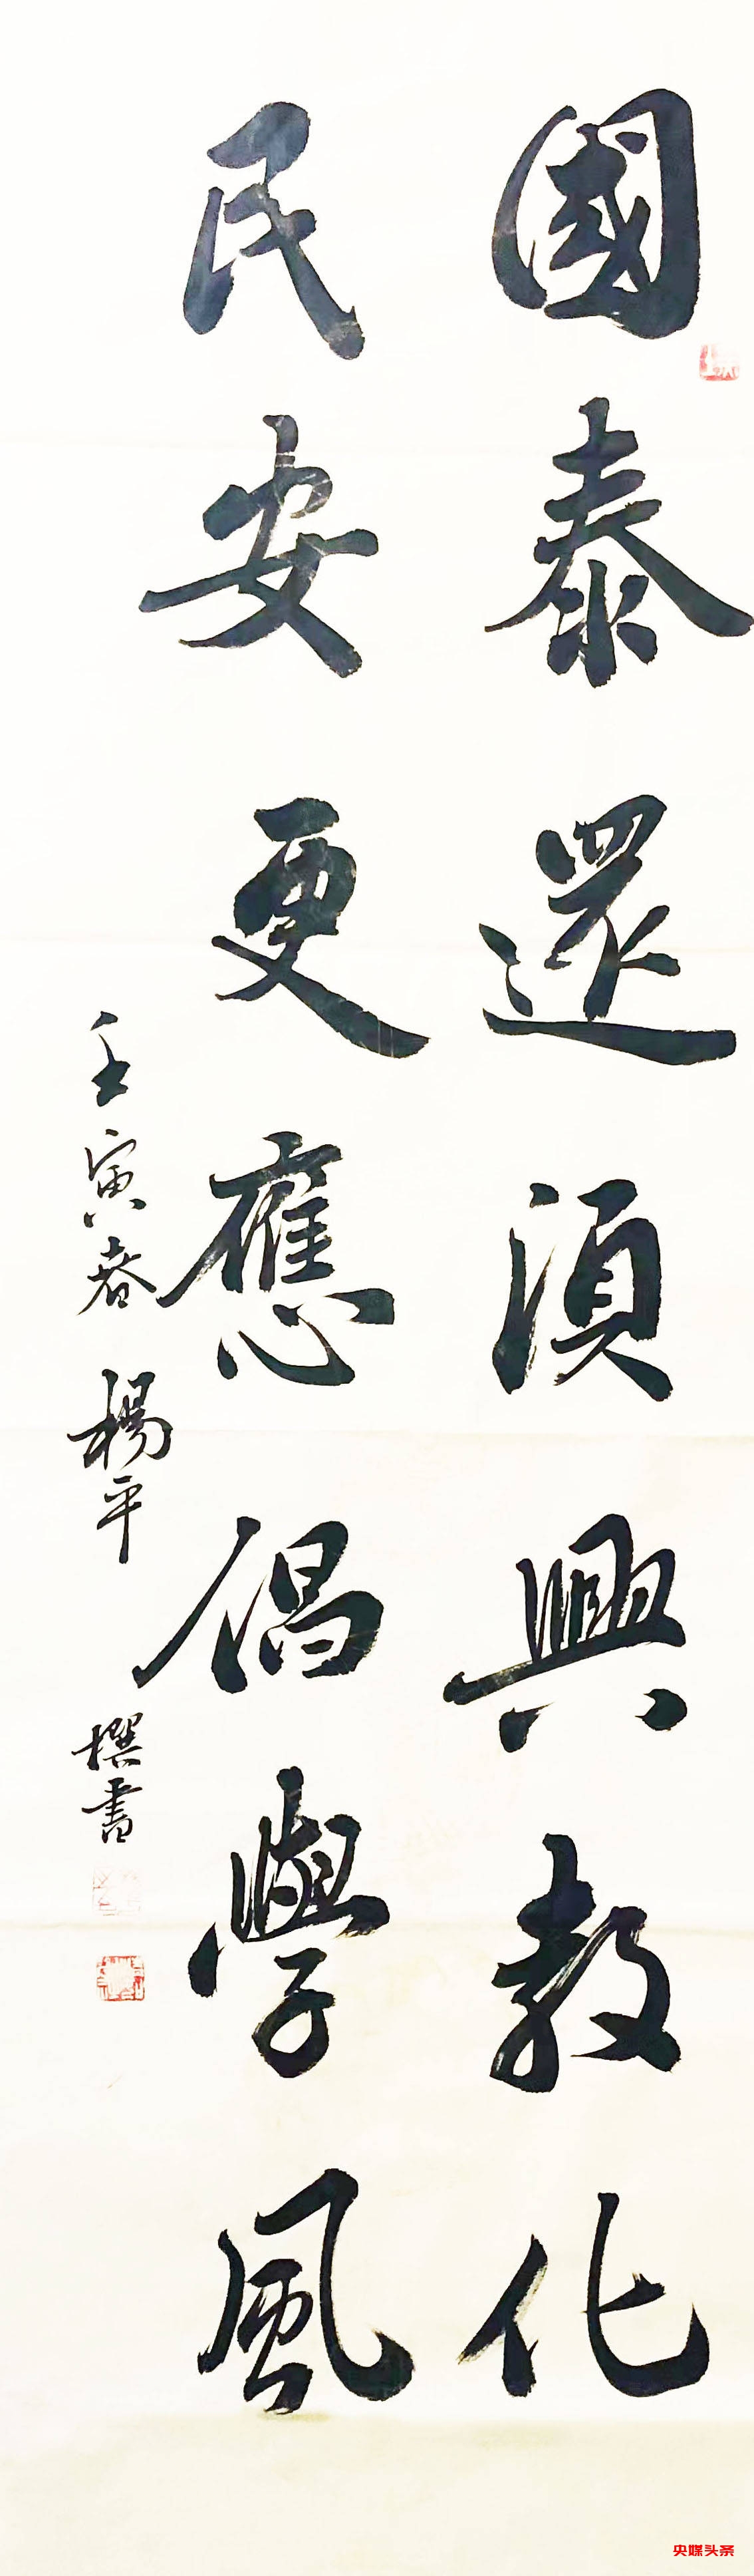 國泰還須興教化
民安更應倡學風
壬寅春楊平撰書
央媒头条